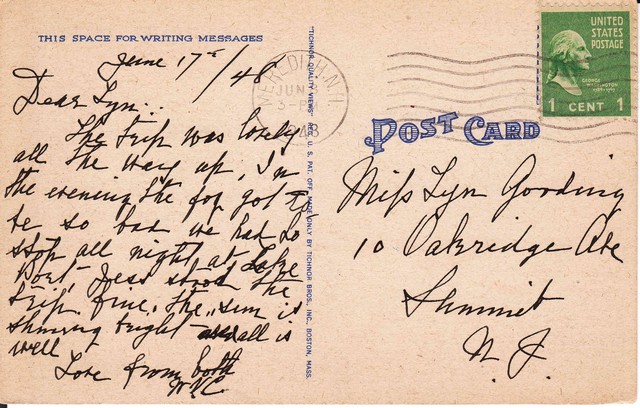 THIS SPACE FOR WRITING MESSAGES
June 17th/48
Dear Lyn..
The trip was lovely
all the way up, In
the evening the fog got to
be so bad we had to
stop all night at Lake
Port, Jess stood the
trip fine. The sun is
shining bright all is
well
Love from both
"TICHNOR QUALITY VIEWS" REG. U. S. PAT. OFF. MADE ONLY BY TICHNOR BROS. INC., BOSTON, MASS.
MEREDITH, N.H.
JUN
3-P
48
UNITED
STATES
POSTAGE
GEORGE
WASHINGTON
1 CENT 1
POST CARD
Miss Lyn Gooding
10 Oakridge Ave
Summit
N. J.